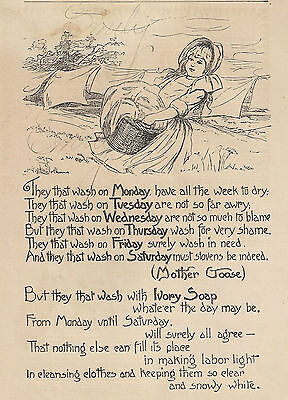 They that wash on Monday have all the week to dry;
They that wash on Tuesday are not so far awry,
They that wash on Wednesday are not so much to blame
But they that wash on Thursday wash for very shame.
They that wash on Friday surely wash in need.
And they that wash on Saturday must slovens be indeed.
(Mother Goose)
But they that wash with Ivory Soap
whate'er the day may be,
From Monday until Saturday,
will surely all agree—
That nothing else can fill its place
in making labor light
In cleansing clothes and keeping them so clear
and snowy white.